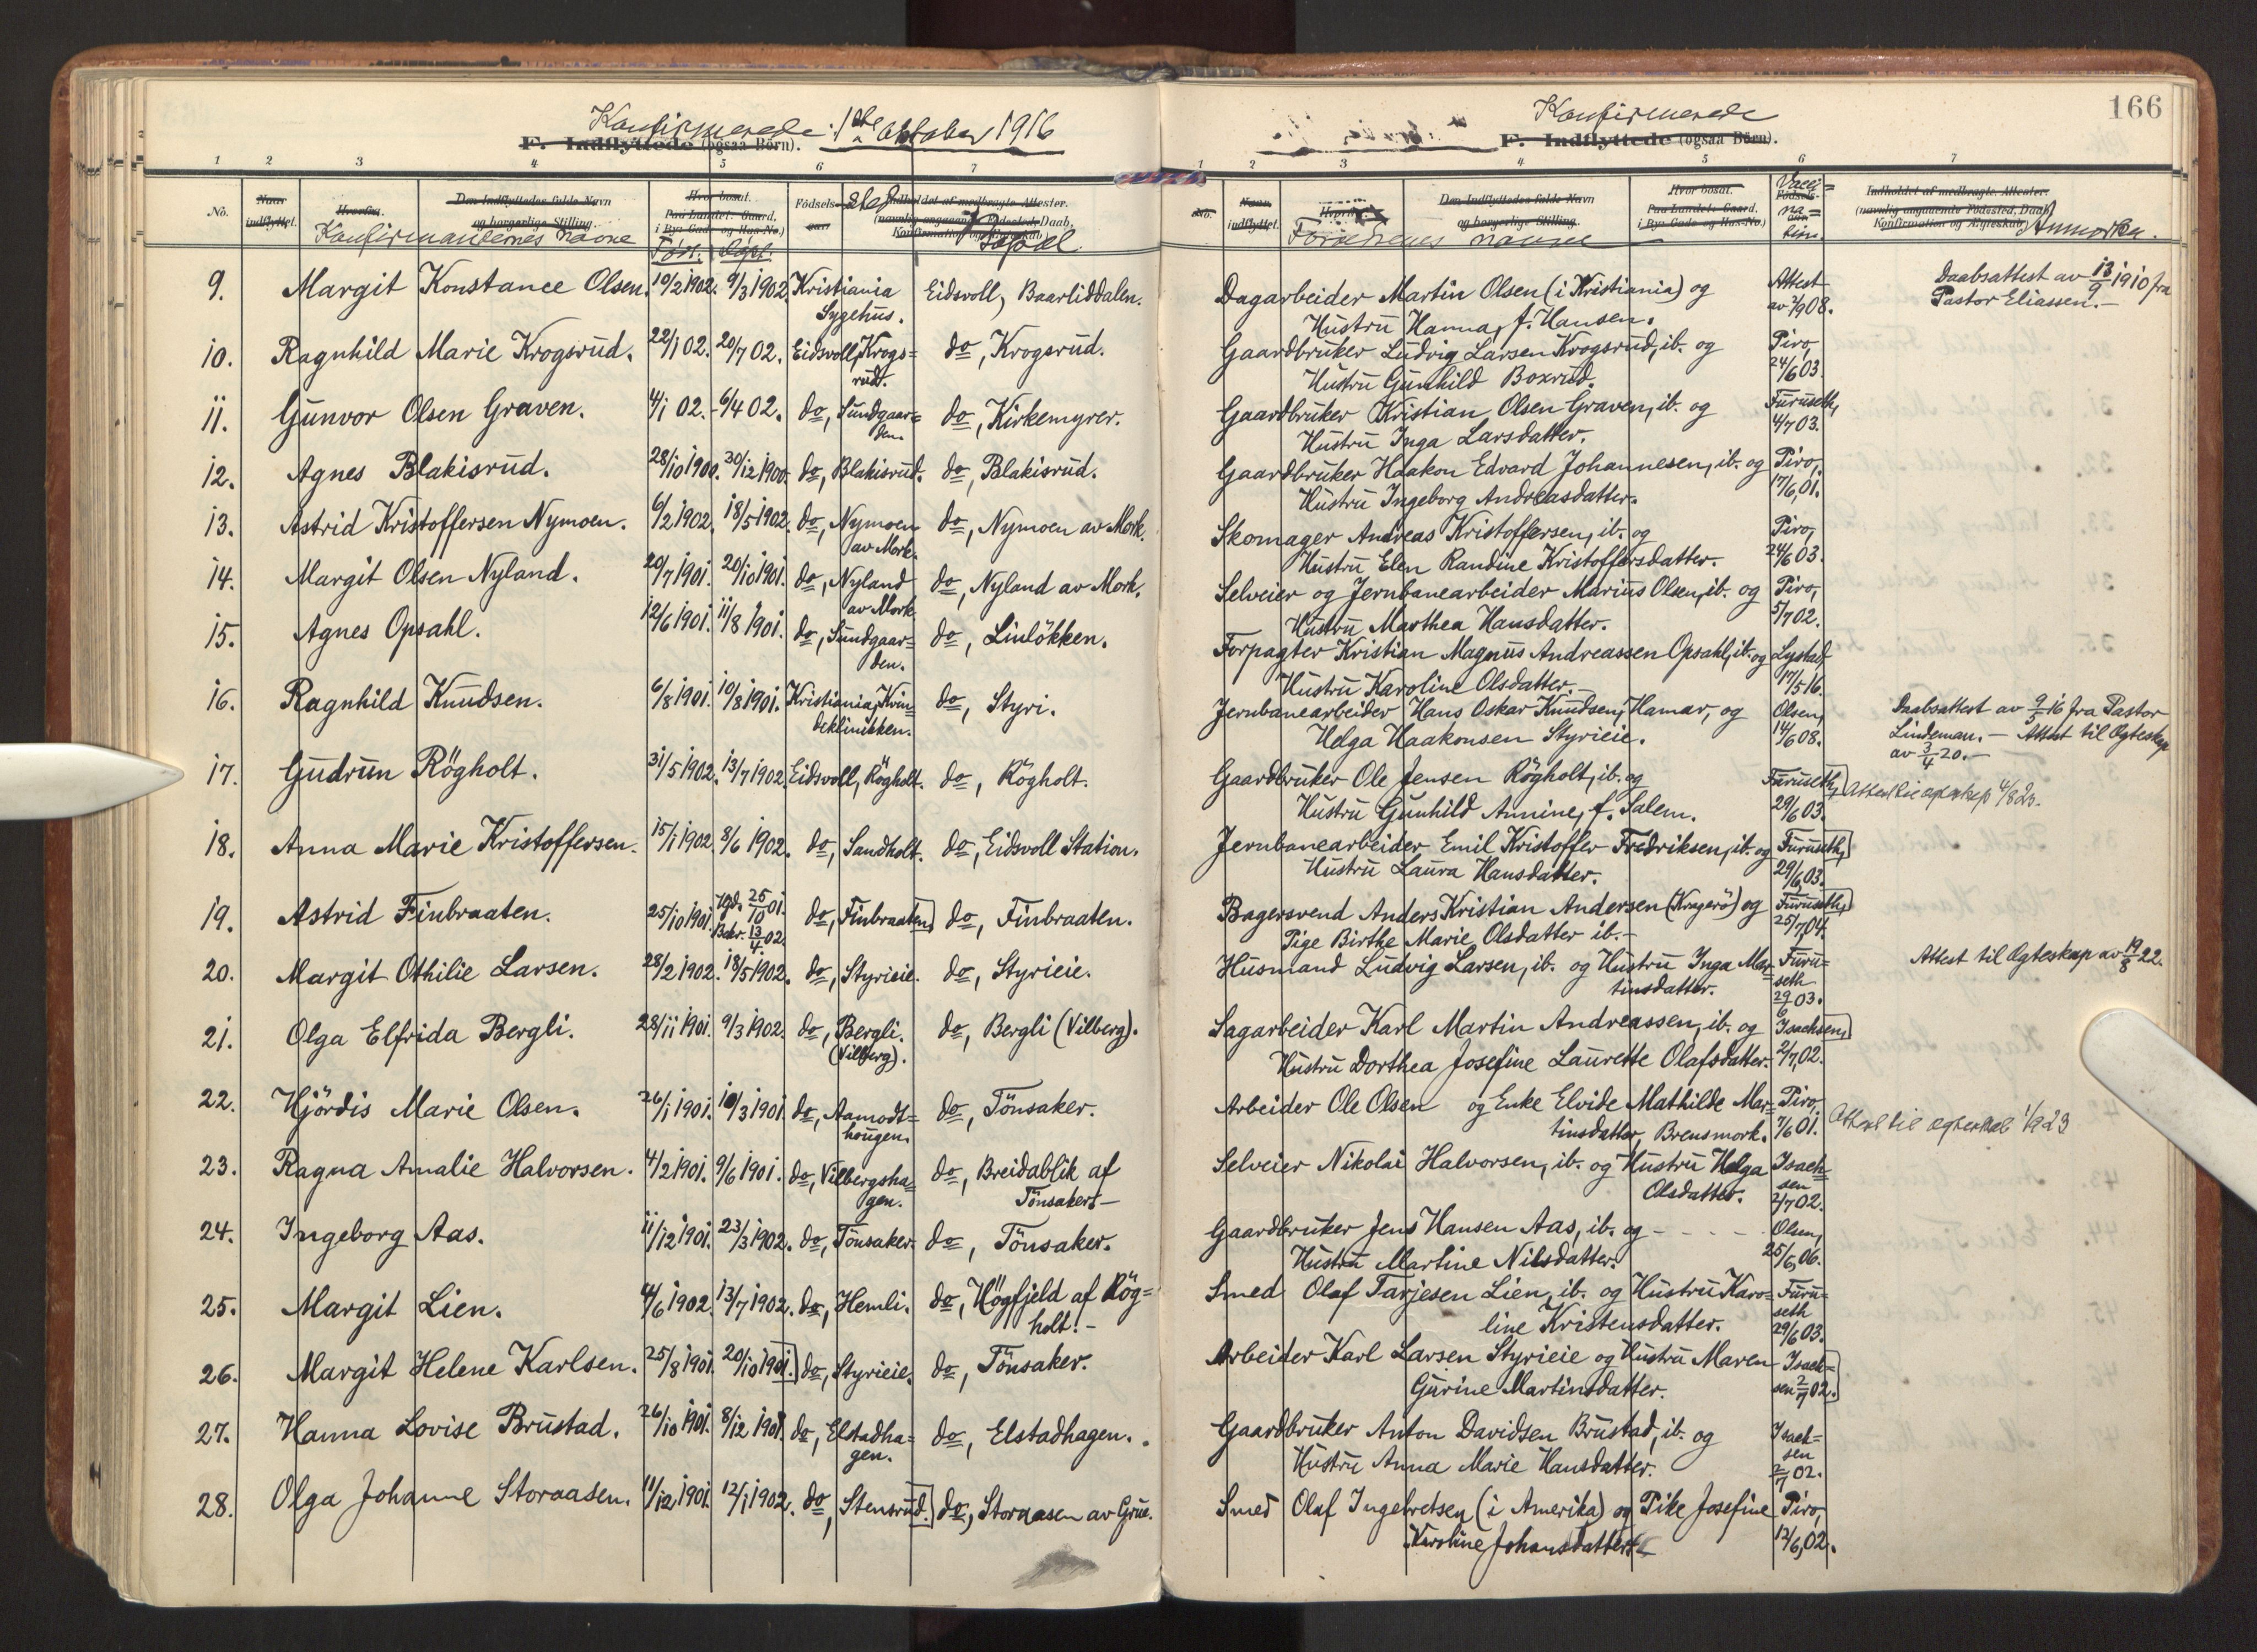 Konfirmerede 1ste oktober 1916
F. Indflyttede (ogsaa Börn).
1 2 3 4 5 6 7
No.
Naar indflyttet.
Hvorfra.
Den Indflyttedes fulde Navn og borgerlige Stilling.
Konfirmanternes navne
Hvor bosat.
Paa Landet: Gaard,
i By: Gade og Hus-No.)
Født. Døpt.
Födsels- sted
aar.
Indholdet af medbragte Attester.
(navnlig angaaende Födested, Daab, Konfirmation og Ægteskab)
Bopæl
9. Margit Konstance Olsen. 10/2 1902. 9/3 1902 Kristiania Sygehus. Eidsvoll, Baarliddalen.
10. Ragnhild Marie Krogsrud. 22/1 02. 20/7 02. Eidsvoll, Krogs=
rud. do, Krogsrud.
11. Gunvor Olsen Graven. 4/1 02. 6/4 02. do, Sundgaar=
den. do, Kirkemyrer.
12. Agnes Blakisrud. 28/10 1900. 30/12 1900. do, Blakisrud. do, Blakisrud.
13. Astrid Kristoffersen Nymoen. 6/2 1902. 18/5 1902. do, Nymoen
av Mork. do, Nymoen av Mork.
14. Margit Olsen Nyland. 20/7 1901. 20/10 1901. do, Nyland
av Mork. do, Nyland av Mork.
15. Agnes Opsahl. 12/6 1901. 11/8 1901. do, Sundgaar=
den. do, Linlökken.
16. Ragnhild Knudsen. 6/8 1901. 10/8 1901. Kristiania, Kvin=
deklinikken. do, Styri.
17. Gudrun Rögholt. 31/5 1902. 13/7 1902 Eidsvoll, Rögholt. do, Rögholt.
18. Anna Marie Kristoffersen. 15/1 1902. 8/6 1902. do, Sandholt. do, Eidsvoll Station.
19. Astrid Finbraaten. 25/10 1901. Hgd. 25/10 01.
Bekr. 13/4 02. do, Finbraaten do, Finbraaten.
20. Margit Othilie Larsen. 28/2 1902. 18/5 1902. do, Styrieie. do, Styrieie.
21. Olga Elfrida Bergli. 28/11 1901. 9/3 1902. do, Bergli.
(Vilberg). do, Bergli (Vilberg).
22. Hjördis Marie Olsen. 26/1 1901. 10/3 1901 do, Aamodt=
hougen. do, Tönsaker.
23. Ragna Amalie Halvorsen. 4/2 1901. 9/6 1901. do, Vilbergsha=
gen. do, Breidablik af
Tönsaker. -
24. Ingeborg Aas. 11/12 1901. 23/3 1902. do, Tönsaker. do, Tönsaker.
25. Margit Lien. 4/6 1902. 13/7 1902. do, Hemli. do, Högfjeld af Rög=
holt. -
26. Margit Helene Karlsen. 25/8 1901. 20/10 1901. do, Styrieie. do, Tönsaker.
27. Hanna Lovise Brustad. 26/10 1901. 8/12 1901. do, Elstadha=
gen. do, Elstadhagen.
28. Olga Johanne Storaasen. 11/12 1901. 12/1 1902. do, Stensrud. do, Storaasen av Grue.
166
Konfirmerede
F. Indflyttede (ogsaa Börn).
1 2 3 4 5 6 7
No.
Naar indflyttet.
Den Indflyttedes fulde Navn og borgerlige Stilling.
Forældrenes navne
Hvor bosat.
Paa Landet: Gaard.
i By: Gade og Hus-No.)
Vacci=
na=
tion.
Indholdet af medbragte Attester.
(navnlig angaaende Födested, Daab, Konfirmation og Ægteskab)
Anmerkn.
Dagarbeider Martin Olsen (i Kristiania) og Attest Daabsattest av 13/9 1910 fra
Hustru Hanna, f. Hansen. av 2/9 08. Pastor Eliassen. -
Gaardbruker Ludvig Larsen Krogsrud, ib. og Piro,
Hustru Gunhild Boxrud. 24/6 03.
Gaardbruker Kristian Olsen Graven, ib. og Furuseth,
Hustru Inga Larsdatter. 4/7 03.
Gaardbruker Haakon Edvard Johannesen, ib. og Piro,
Hustru Ingeborg Andreasdatter. 17/6 01.
Skomager Andreas Kristoffersen, ib. og Piro,
Hustru Elen Randine Kristoffersdatter. 24/6 03.
Selveier og Jernbanearbeider Marius Olsen, ib. og Piro,
Hustru Marthea Hansdatter. 5/7 02.
Forpagter Kristian Magnus Andreassen Opsahl, ib. og Lystad,
Hustru Karoline Olsdatter. - 17/5 16.
Jernbanearbeider Hans Oskar Knudsen, Hamar, og Olsen, Daabsattest av 9/5 16 fra Pastor
Helga Haakonsen Styrieie. 14/6 08. Lindeman. - Attest til Ægteskap
av 3/4 20. -
Gaardbruker Ole Jensen Rögholt, ib. og Furuseth, Attest til egteskap 4/8 23.
Hustru Gunhild Annine, f. Salem. 29/6 03.
Jernbanearbeider Emil Kristoffer Fredriksen, ib. og Furuseth,
Hustru Laura Hansdatter. 29/6 03.
Bagersvend Anders Kristian Andersen (Kragerö) og Furuseth,
Pige Birthe Marie Olsdatter ib. - 25/7 04.
Husmand Ludvig Larsen, ib. og Hustru Inga Mar= Furu= Attest til Ægteskap av 19/8 22.
tinsdatter. seth 29/6 03.
Sagarbeider Karl Martin Andreassen, ib. og Isachsen,
Hustru Dorthea Josefine Laurette Olafsdatter. 2/7 02.
Arbeider Ole Olsen og Enke Elvide Mathilde Mar= Piro, Attest til egteskab 1/9 23
tinsdatter, Brensmork. 7/6 01.
Selveier Nikolai Halvorsen, ib. og Hustru Helga Isach=
Olsdatter. sen 2/7 02.
Gaardbruker Jens Hansen Aas, ib. og - - - - Olsen,
Hustru Martine Nilsdatter. 25/6 06.
Smed Olaf Tarjesen Lien, ib. og Hustru Karo= Furu=
line Kristensdatter. seth 29/6 03.
Arbeider Karl Larsen Styrieie og Hustru Maren Isach=
Gurine Martinsdatter. sen 2/7 02.
Gaardbruker Anton Davidsen Brustad, ib. og Isach=
Hustru Anna Marie Hansdatter. sen 2/7 02.
Smed Olaf Ingebretsen (i Amerika) og Pike Josefine Piro,
Karoline Johansdatter. 12/6 02.